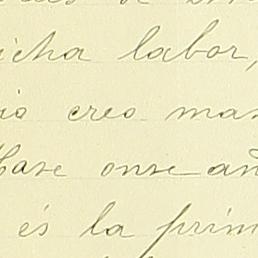 icha labor,
io creo mas
Hase onse añ
és la prim